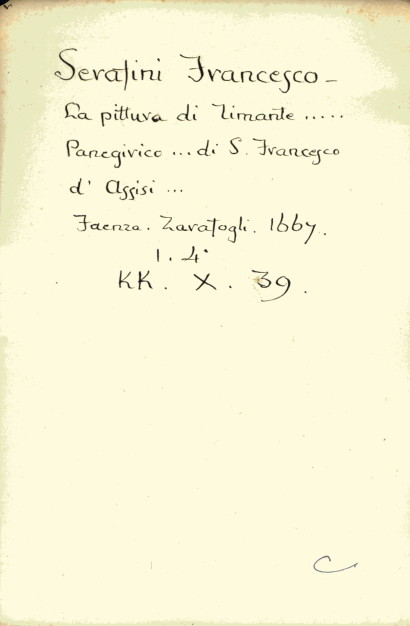 Serafini Francesco -
La pittura di Timante .....
Panegirico ... di S. Francesco
d' Assisi ...
Faenza. Zarafogli. 1667.
1. 4°
KK. X. 39.
C